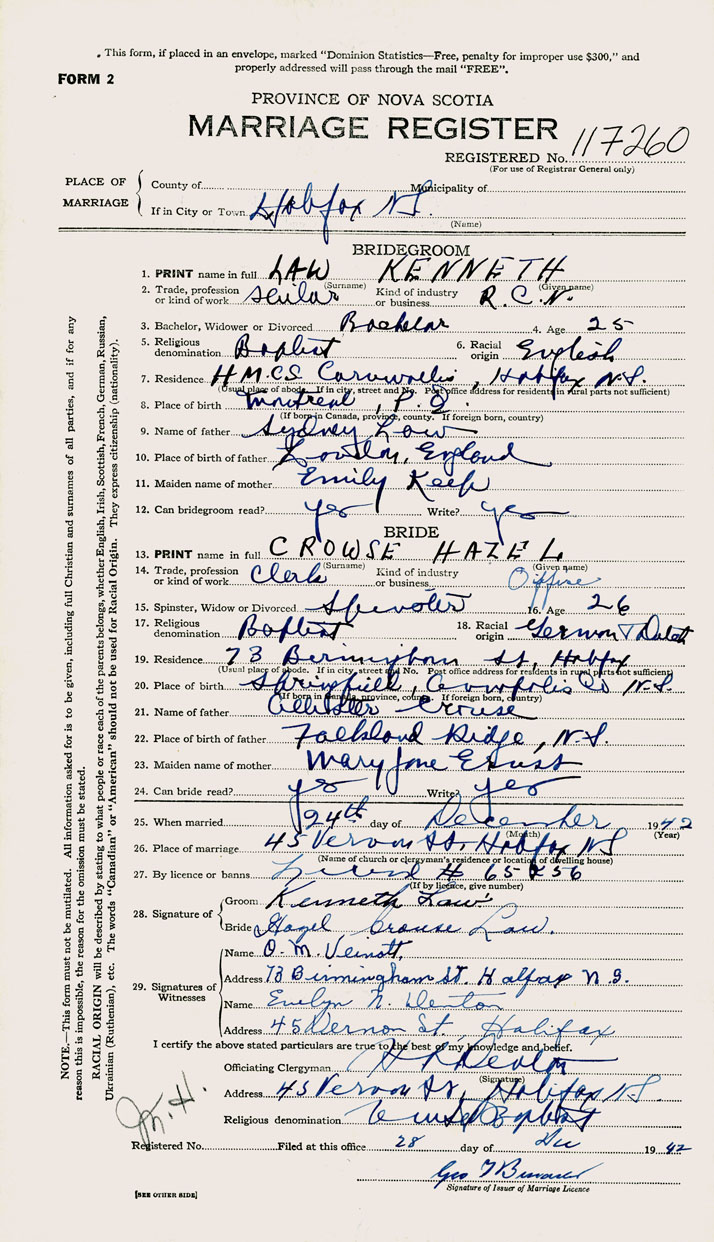 This form, if placed in an envelope, marked "Dominion Statistics—Free, penalty for improper use $300," and
properly addressed will pass through the mail "FREE".
FORM 2
PROVINCE OF NOVA SCOTIA
MARRIAGE REGISTER
REGISTERED No. 117260
(For use of Registrar General only)
PLACE OF MARRIAGE
County of Municipality of
If in City or Town Halifax N.S.
(Name)
BRIDEGROOM
1. PRINT name in full LAW KENNETH
(Surname) (Given name)
2. Trade, profession or kind of work Sailor Kind of industry or business R.C.N.
3. Bachelor, Widower or Divorced Bachelor 4. Age 25
5. Religious denomination Baptist 6. Racial origin English
7. Residence H.M.C.S. Cornwallis, Halifax N.S.
(Usual place of abode. If in city, street and No. Post office address for residents in rural parts not sufficient)
8. Place of birth Montreal, P.Q.
(If born in Canada, province, county. If foreign born, country)
9. Name of father Sydney Law
10. Place of birth of father London, England
11. Maiden name of mother Emily Keep
12. Can bridegroom read? yes Write? yes
BRIDE
13. PRINT name in full CROWSE HAZEL
(Surname) (Given name)
14. Trade, profession or kind of work Clerk Kind of industry or business Office
15. Spinster, Widow or Divorced Spinster 16. Age 26
17. Religious denomination Baptist 18. Racial origin German & Dutch
19. Residence 73 Birmingham St, Halifax
(Usual place of abode. If in city, street and No. Post office address for residents in rural parts not sufficient)
20. Place of birth Springfield, Annapolis Co N.S.
(If born in Canada, province, county. If foreign born, country)
21. Name of father Crouse
22. Place of birth of father Falkland Ridge, N.S.
23. Maiden name of mother Mary Jane Ernst
24. Can bride read? yes Write? yes
25. When married 24th day of December 1942
(Month) (Year)
26. Place of marriage 45 Vernon St. Halifax NS
(Name of church or clergyman's residence or location of dwelling house)
27. By licence or banns # 65
(If by licence, give number)
28. Signature of
Groom Kenneth Law
Bride Hazel Crouse Law.
29. Signatures of Witnesses
Name O. M. Veinott,
Address 73 Birmingham St. Halifax N.S.
Name Evelyn N. Denton
Address 45 Vernon St., Halifax
I certify the above stated particulars are true to the best of my knowledge and belief.
Officiating Clergyman Denton
(Signature)
Address 45 Vernon St, Halifax N.S.
Religious denomination United Baptist
Registered No. Filed at this office 28 day of Dec 1942
Geo
Signature of Issuer of Marriage Licence
[SEE OTHER SIDE]
NOTE.—This form must not be mutilated. All information asked for is to be given, including full Christian and surnames of all parties, and if for any
reason this is impossible, the reason for the omission must be stated.
RACIAL ORIGIN will be described by stating to what people or race each of the parents belongs, whether English, Irish, Scottish, French, German, Russian,
Ukrainian (Ruthenian), etc. The words "Canadian" or "American" should not be used for Racial Origin. They express citizenship (nationality).